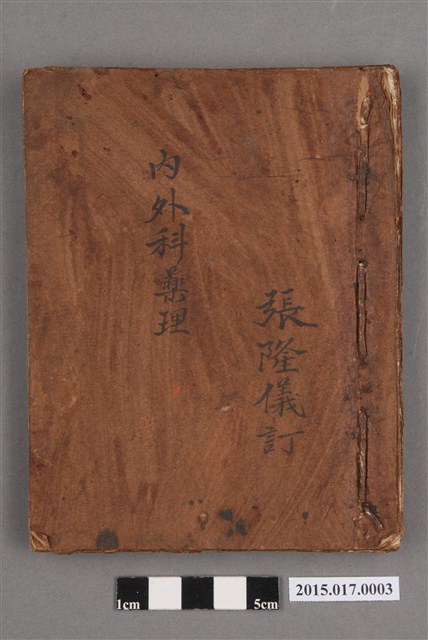 張隆儀訂
內外科藥理
1cm
5cm
2015.017.0003